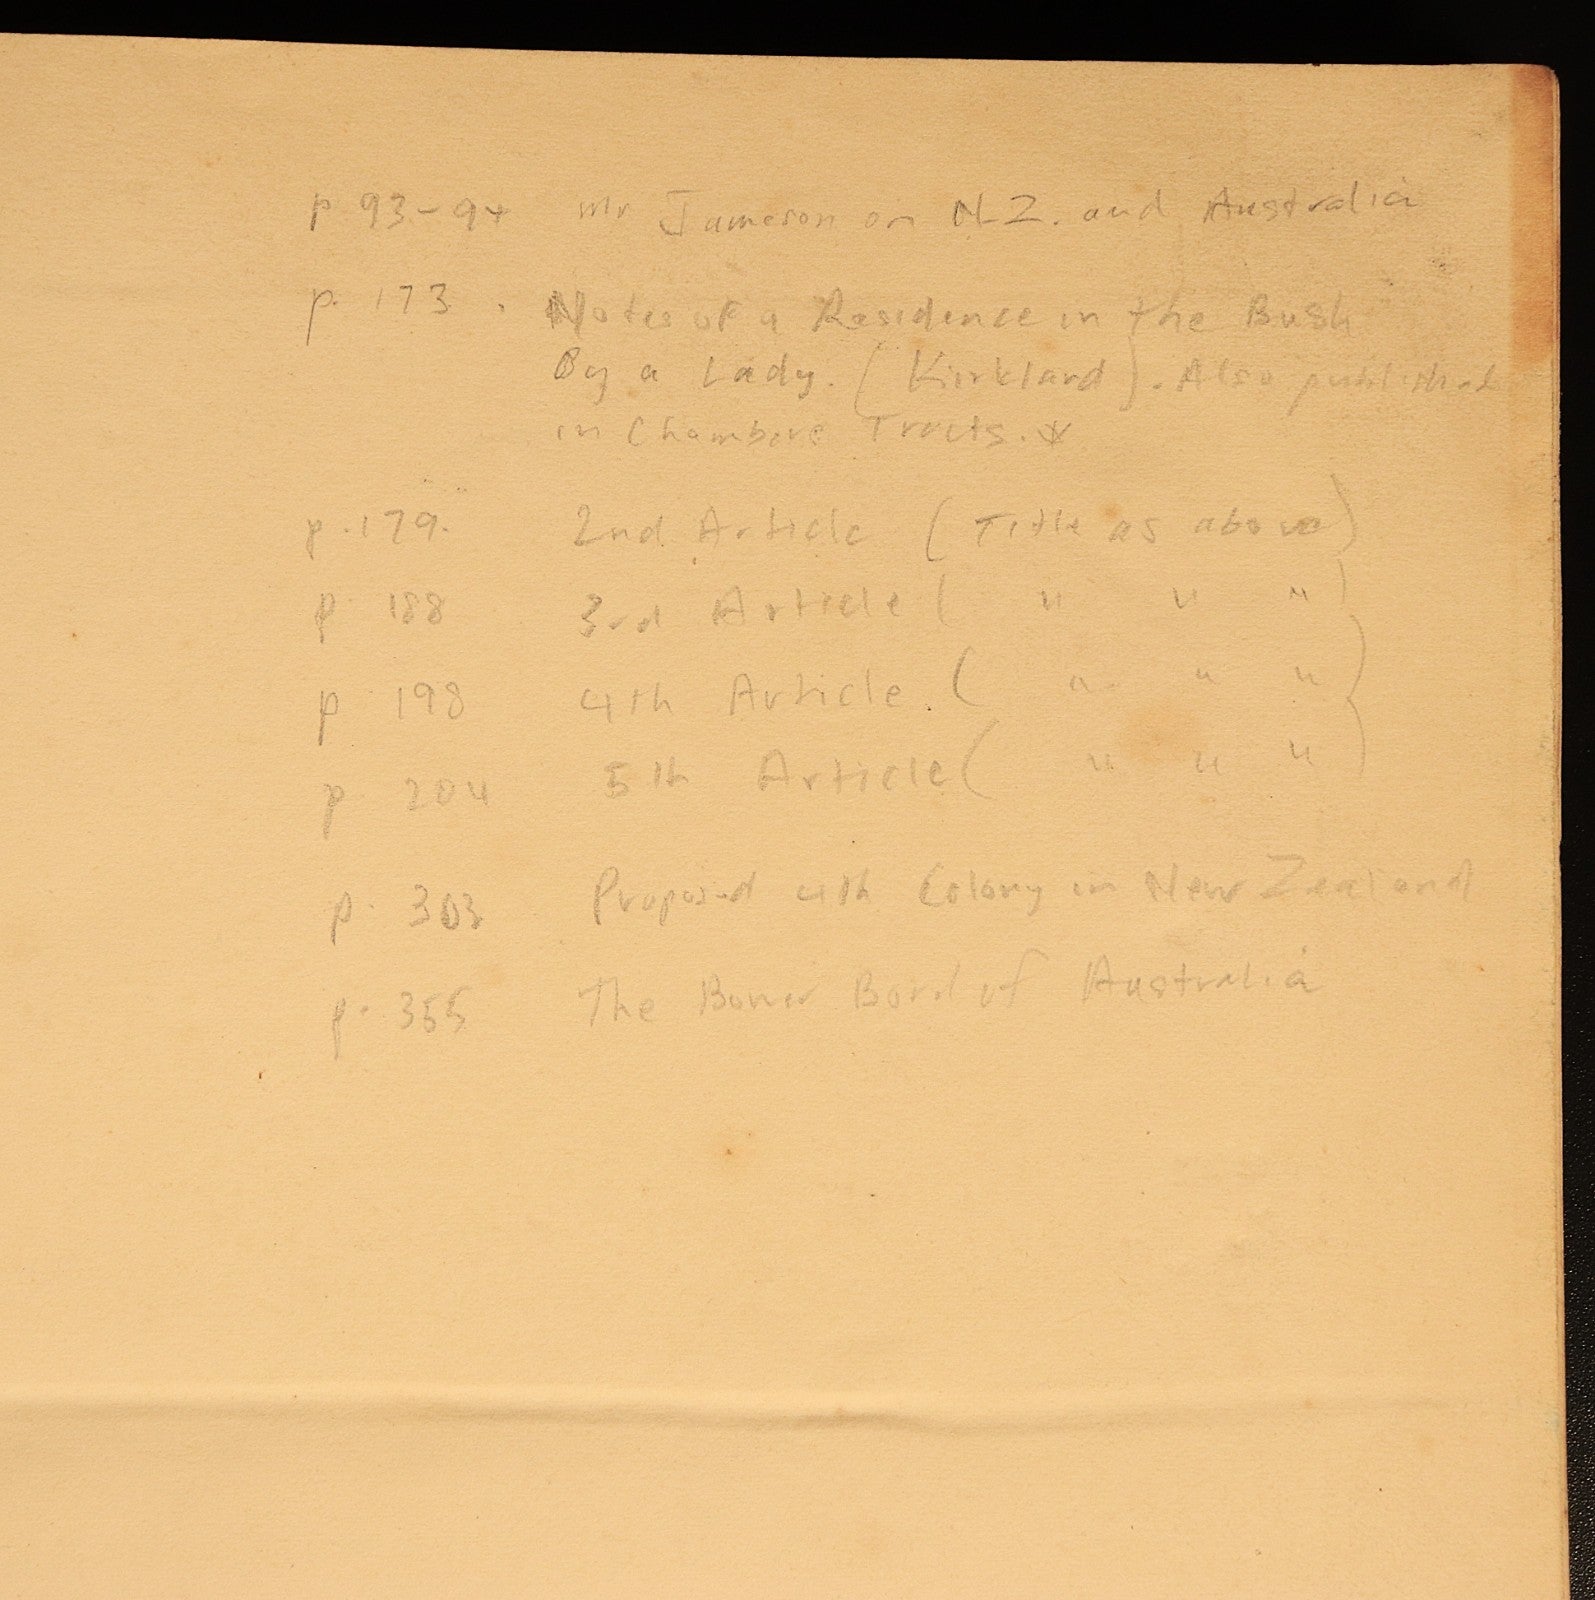 p 93-94 Mr Jameson on N.Z. and Australia
p. 173. Notes of a Residence in the Bush
By a Lady. (Kirkland). Also published
in Chambers Tracts. *
p. 179. 2nd Article (Title as above)
p. 188 3rd Article ( " " " )
p 198 4th Article. ( " " " )
p 204 5th Article ( " " " )
p. 303 Proposed 4th Colony in New Zealand
p. 355 The Bower Bird of Australia